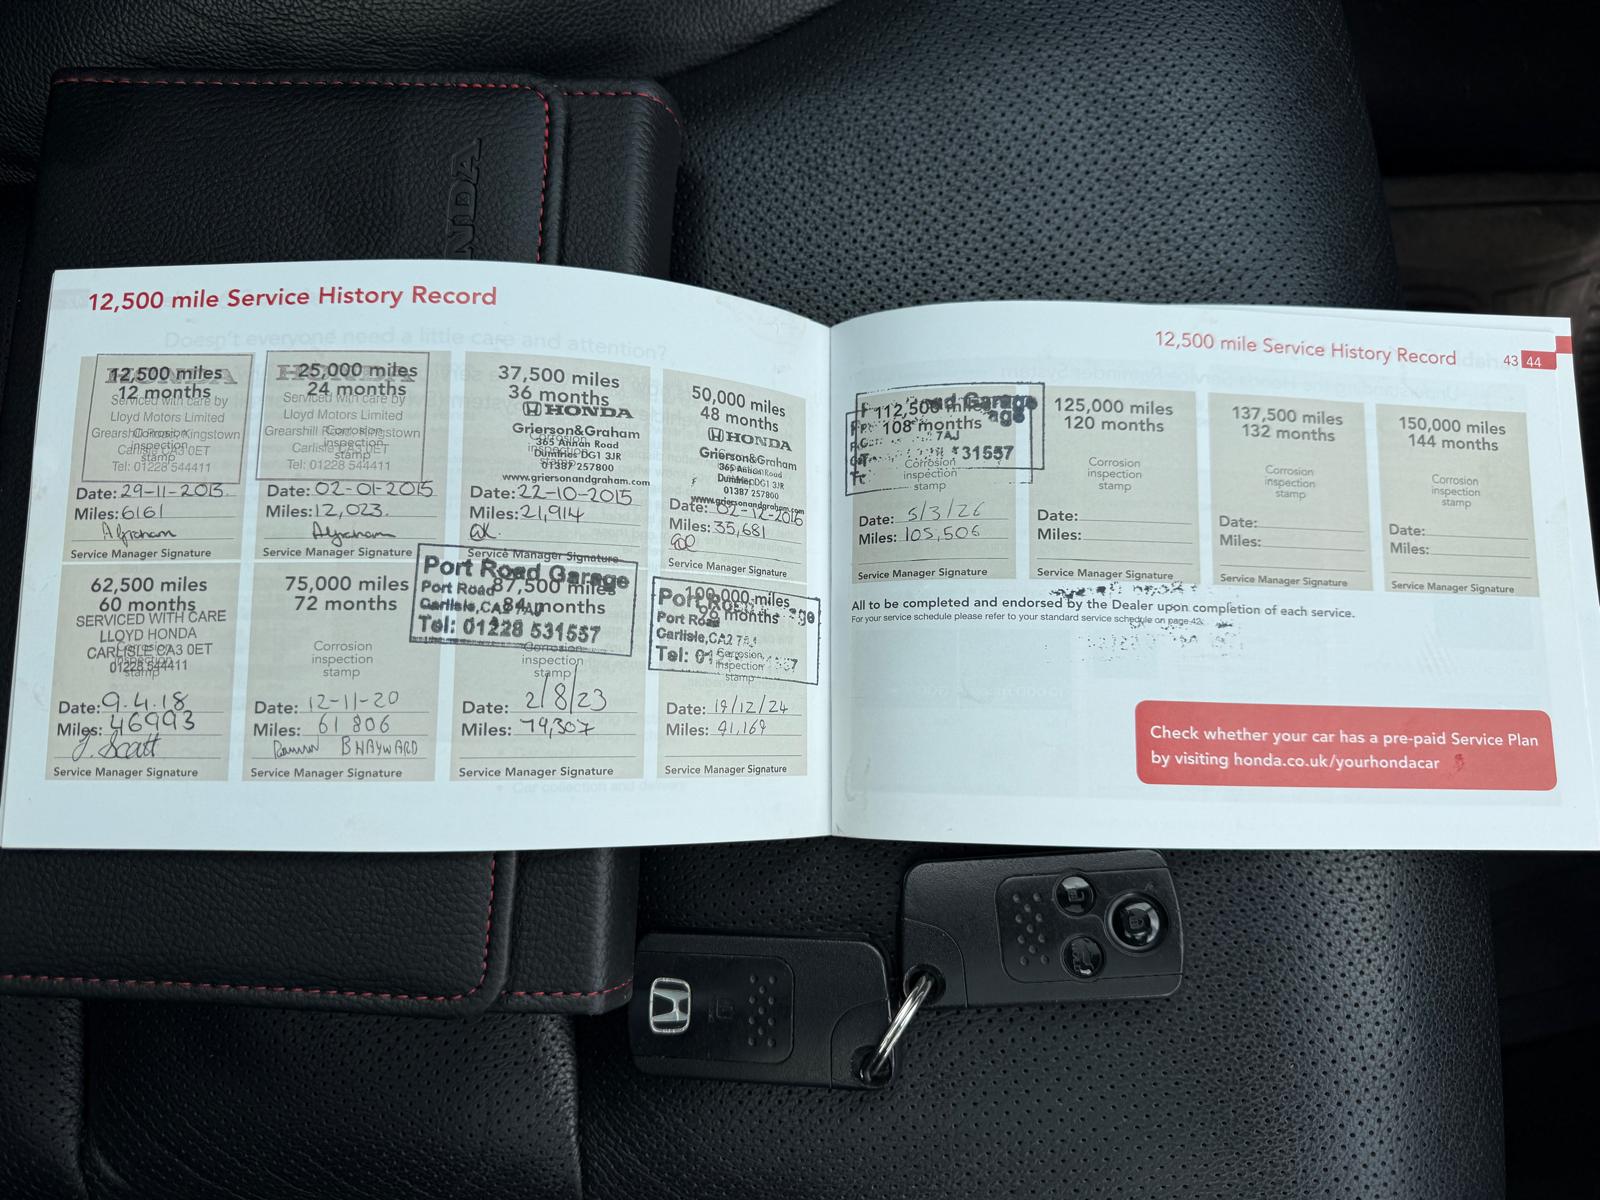 HONDA
12,500 mile Service History Record
12,500 miles
12 months
Serviced with care by
Lloyd Motors Limited
Grearshill Road, Kingstown
Carlisle CA3 0ET
Tel: 01228 544411
Corrosion
inspection
stamp
Date: 29-11-2013.
Miles: 6161
A Graham
Service Manager Signature
25,000 miles
24 months
Serviced with care by
Lloyd Motors Limited
Grearshill Road, Kingstown
Carlisle CA3 0ET
Tel: 01228 544411
Corrosion
inspection
stamp
Date: 02-01-2015
Miles: 12,023.
A Graham
Service Manager Signature
37,500 miles
36 months
HONDA
Grierson&Graham
365 Annan Road
Dumfries DG1 3JR
01387 257800
www.griersonandgraham.com
Date: 22-10-2015
Miles: 21,914
Service Manager Signature
50,000 miles
48 months
HONDA
Grierson&Graham
365 Annan Road
Dumfries DG1 3JR
01387 257800
www.griersonandgraham.com
Date: 02-12-2016
Miles: 35,681
Service Manager Signature
62,500 miles
60 months
SERVICED WITH CARE
LLOYD HONDA
CARLISLE CA3 0ET
01228 544411
Corrosion
inspection
stamp
Date: 9.4.18
Miles: 46993
J. Scott
Service Manager Signature
75,000 miles
72 months
Corrosion
inspection
stamp
Date: 12-11-20
Miles: 61 806
B HAYWARD
Service Manager Signature
87,500 miles
84 months
Port Road Garage
Port Road
Carlisle, CA2 7AJ
Tel: 01228 531557
Corrosion
inspection
stamp
Date: 2/8/23
Miles: 79,307
Service Manager Signature
100,000 miles
96 months
Port Road
Carlisle, CA2 7AJ
Corrosion
inspection
stamp
Date: 19/12/24
Miles: 91,169
Service Manager Signature
12,500 mile Service History Record 43 44
112,500 miles
108 months
Garage
7AJ
31557
Corrosion
inspection
stamp
Date: 5/3/26
Miles: 105,506
Service Manager Signature
125,000 miles
120 months
Corrosion
inspection
stamp
Date:
Miles:
Service Manager Signature
137,500 miles
132 months
Corrosion
inspection
stamp
Date:
Miles:
Service Manager Signature
150,000 miles
144 months
Corrosion
inspection
stamp
Date:
Miles:
Service Manager Signature
All to be completed and endorsed by the Dealer upon completion of each service.
For your service schedule please refer to your standard service schedule on page 42.
Check whether your car has a pre-paid Service Plan
by visiting honda.co.uk/yourhondacar